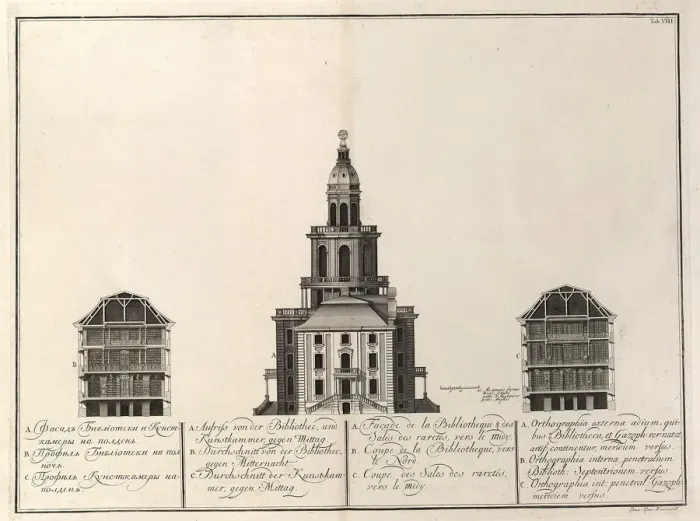 Tab. VIII.
B
A
C
A. Фасадъ Библіотеки и Кунст-
камеры на полдень.
B. Профиль Библіотеки на пол
ночь.
C. Профиль Кунсткамеры на
полдень.
A. Aufriss von der Bibliothec, und
Kunstkammer, gegen Mittag.
B. Durchschnitt von der Bibliothec,
gegen Mitternacht.
C. Durchschnitt der Kunstkam-
mer, gegen Mittag.
A. Façade de la Bibliotheque & des
Sales des raretés, vers le midy.
B. Coupe de la Bibliotheque, vers
le Nord
C. Coupe des Sales des raretés,
vers le midy.
A. Orthographia externa ædium, qui-
bus Bibliotheca, et Gazoph. rer. nat. et
artif. continentur, meridiem versus.
B. Orthographia interna penetralium
Biblioth: Septentrionem versus.
C. Orthographia int: penetral. Gazoph:
meridiem versus.